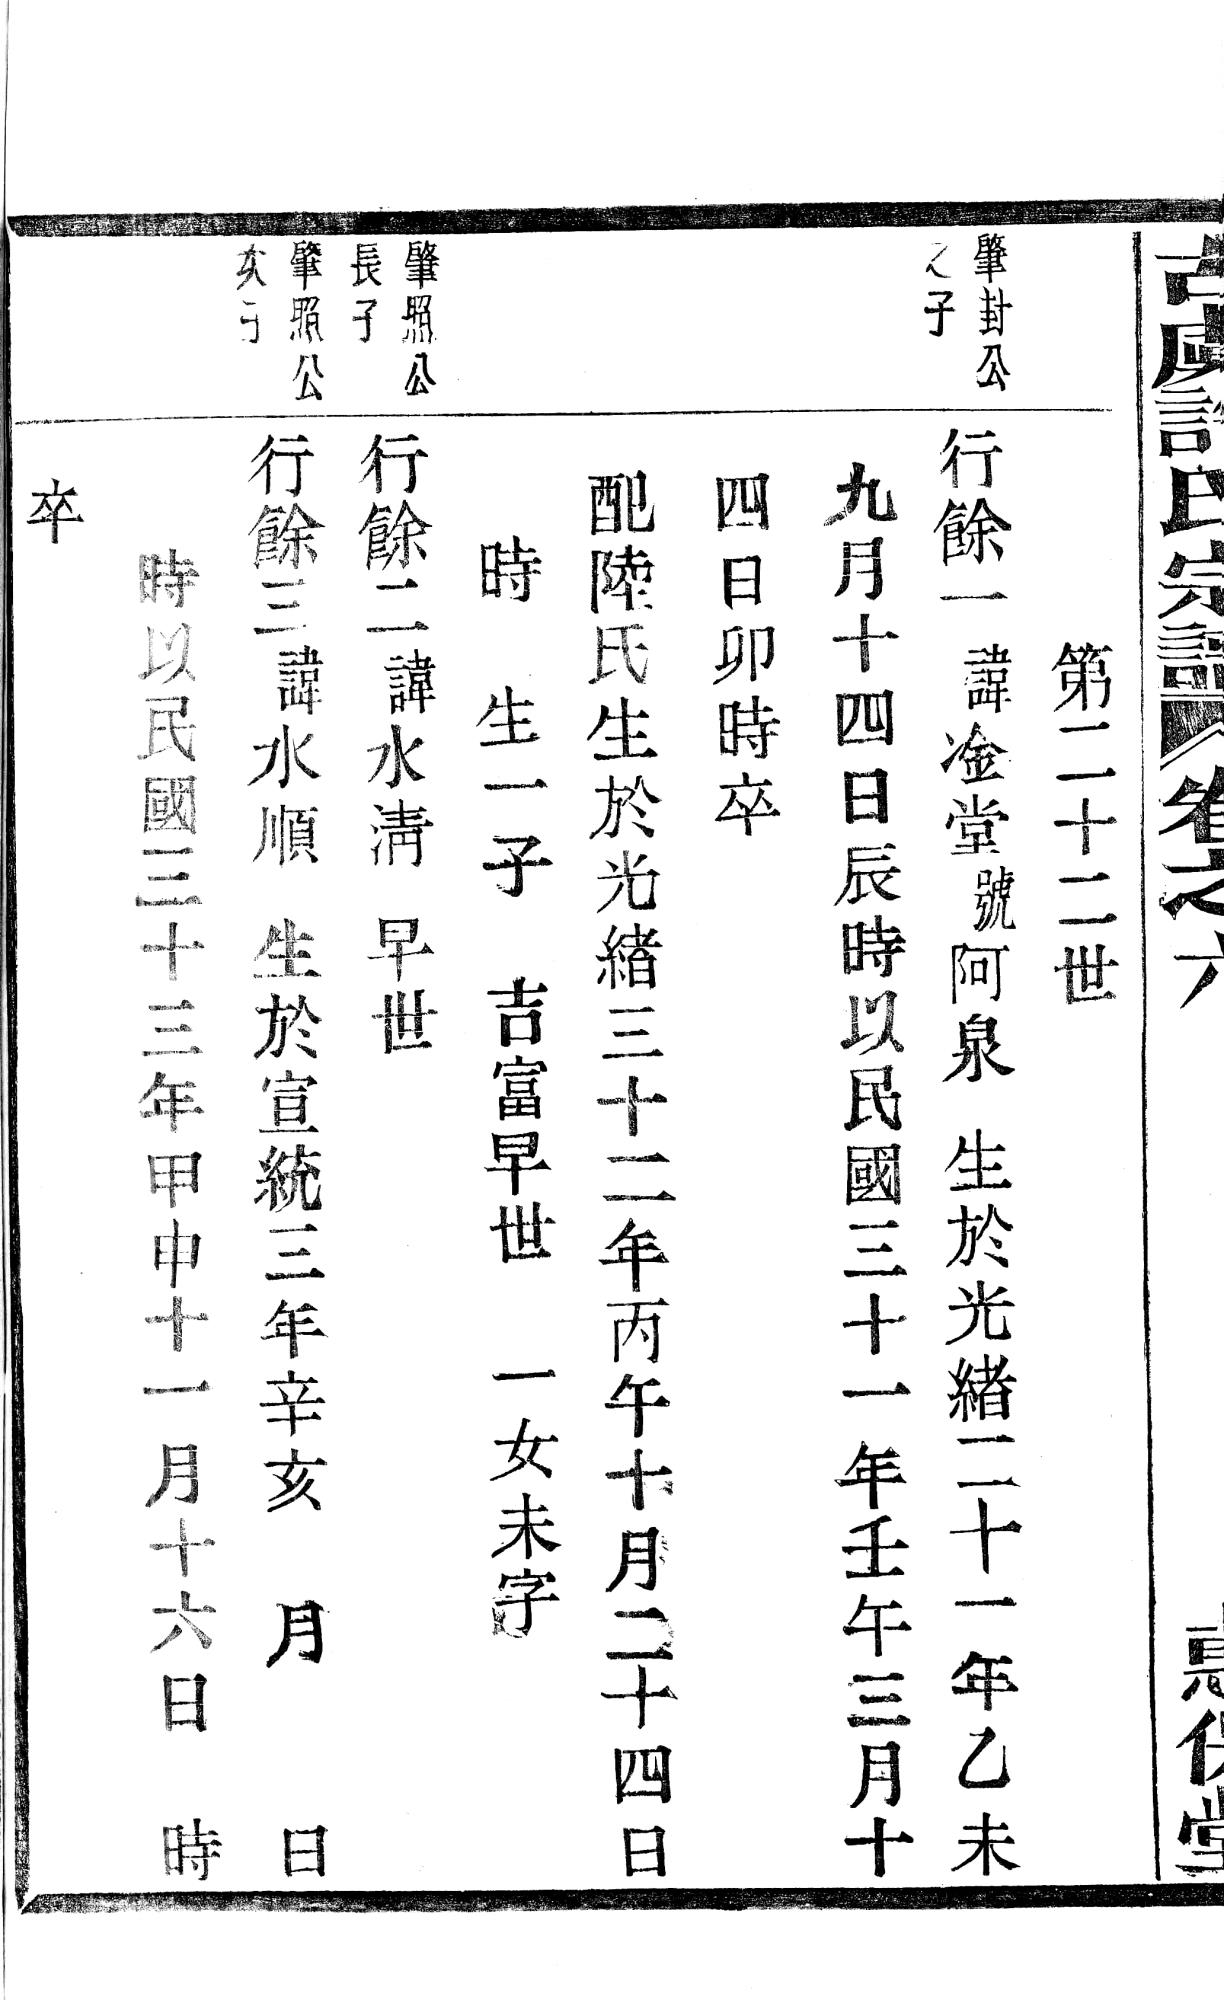 古虞許氏宗譜
卷之六
保堂
第二十二世
肇封公
之子
行餘一 諱淦堂號阿泉 生於光緒二十一年乙未
九月十四日辰時以民國三十一年壬午三月十
四日卯時卒
配陸氏生於光緒三十二年丙午十月二十四日
時 生一子 吉富早世 一女未字
肇照公
長子
行餘二諱水清 早世
肇照公
次子
行餘三諱水順 生於宣統三年辛亥 月 日
時以民國三十三年甲申十一月十六日 時
卒